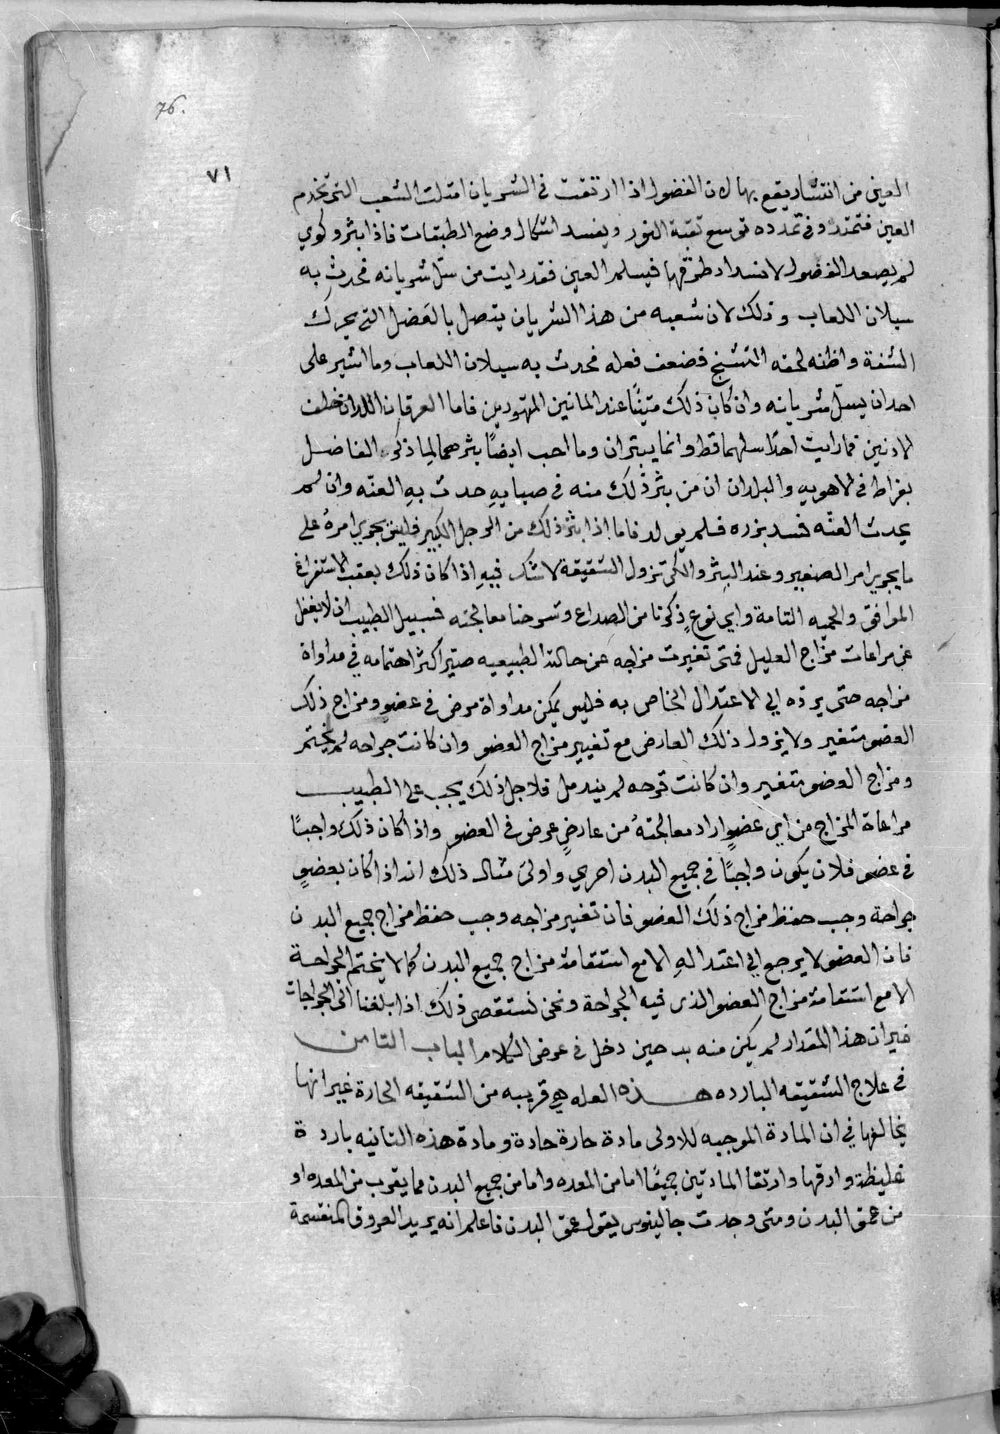 76.
٧١
العين من انتشار يقع بها لان الفضول اذا ارتقت في الشريان امتلت الشعب التي تخدم
العين فتمتد وفي تمدده توسع ثقبة النور ويفسد اشكال وضع الطبقات فاذا بتر وكوي
لم يصعد الفضول لانسداد طرقها فيسلم العين فقد رايت من سل شريانه فحدث به
سيلان اللعاب وذلك لان شعبه من هذا الشريان يتصل بالعضل التي يحرك
الشفة واظنه لحقه التشنج فضعف فعله فحدث به سيلان اللعاب وما اشير على
احد ان يسل شريانه وان كان ذلك عند المهتورين فاما العرقان اللذان خلف
الاذنين فما رايت احدا سلهما قط وانما يبتران وما احب ايضًا بترهما لما ذكره الفاضل
بقراط في الاهويه والبلدان ان من بتر ذلك منه في صباه حدث به العنه وان لم
يحدث العنه فسد بزره فلم يولد فاما اذا بتر ذلك من الرجل الكبير فليس يجري امره على
ما يجري امر الصغير وعند البتر والكي تزول الشقيقة لا شك فيه اذا كان ذلك بعقب الاستفراغ
الموافق والحميه التامة واي نوع ذكرنا من الصداع وشرحنا معالجته فسبيل الطبيب ان لا يغفل
عن مراعات مزاج العليل فمتى تغيرت مزاجه عن حالته الطبيعيه صير اكثر اهتمامه في مداواة
مزاجه حتى يرده الى الاعتدال الخاص به فليس يمكن مداواة مرض في عضو ومزاج ذلك
العضو متغير ولا يزول ذلك العارض مع تغيير مزاج العضو وان كانت جراحه لم يختم
ومزاج العضو متغير وان كانت قرحه لم يندمل فلاجل ذلك يجب على الطبيب
مراعاة المزاج من اي عضوٍ اراد معالجته من عارضٍ عرض في العضو واذا كان ذلك واجبًا
في عضو فلان يكون واجبًا في جميع البدن احرى واولى مثال ذلك انه اذا كان بعضوٍ
جراحة وجب حفظ مزاج ذلك العضو فان تغير مزاجه وجب حفظ مزاج جميع البدن
فان العضو لا يرجع الى اعتداله الا مع استقامة مزاج جميع البدن كما لا يختم الجراحة
الا مع استقامة مزاج العضو الذي فيه الجراحة ونحن نستقصي ذلك اذا بلغنا الى الجراحات
غير ان هذا المقدار لم يكن منه بد حين دخل في عرض الكلام الباب الثامن
في علاج الشقيقه البارده هذه العله هي قريبه من الشقيقه الحارة غير انها
يخالفها في ان المادة الموجبه للاولى مادة حارة حادة ومادة هذه الثانيه باردة
غليظة وارتقا المادتين جميعًا اما من المعده واما من جميع البدن مما يقرب من المعده او
من عمق البدن ومتى وجدت جالينوس يقول عمق البدن فاعلم انه يريد العروق المنقسمة